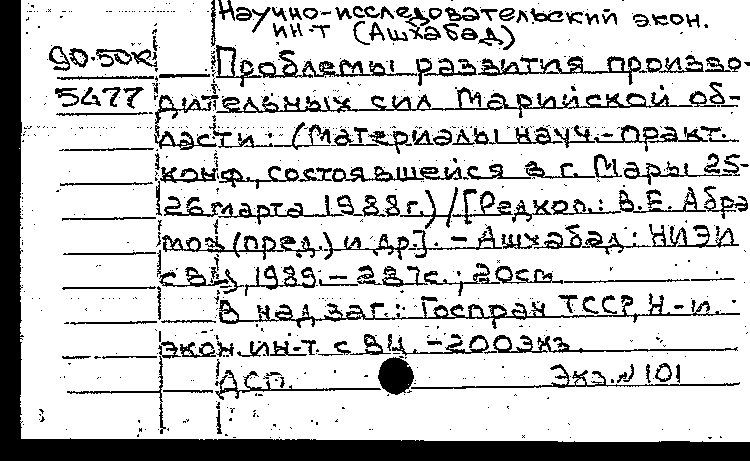 Научно-исследовательский экон.
ин-т (Ашхабад)
90-50к Проблемы развития произво-
5477 дительных сил Марийской об-
ласти: (Материалы науч.-практ.
конф., состоявшейся в г. Мары 25-
26 марта 1988г.) / [Редкол.: В.Е. Абра
мов (пред.) и др.]. - Ашхабад: НИЭИ
с ВЦ, 1989. - 287с.; 20см
В надзаг.: Госплан ТССР, Н.-и.
экон. ин-т. с ВЦ. - 200экз.
ДСП. Экз.№101